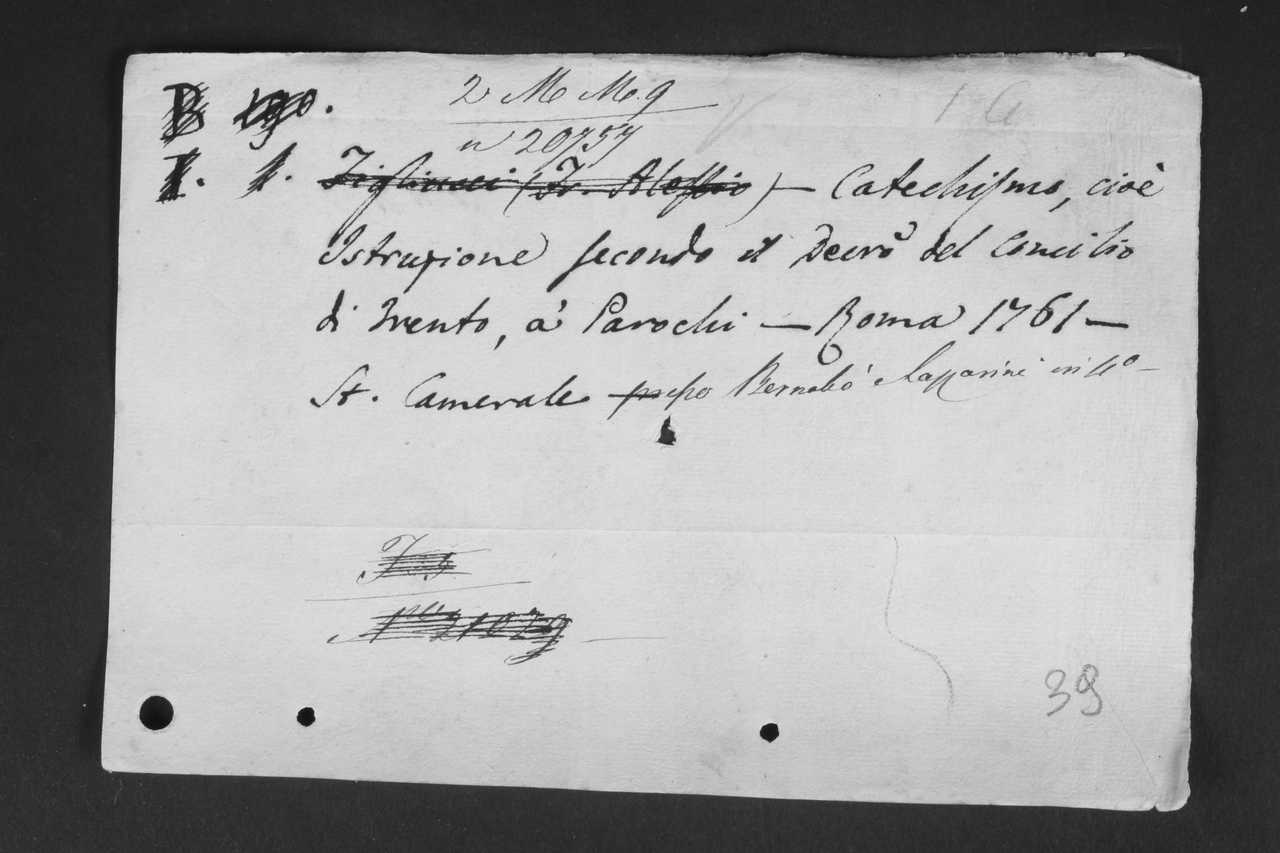 B 190.
2 Me Me. 9
n 20757
I. 1. Figliucci (Fr. Alessio) — Catechismo, cioè
Istruzione secondo il Decrõ del Concilio
di Trento, a' Parochi — Roma 1761 —
St. Camerale presso Bernabò e Lazzarini in 4º —
39